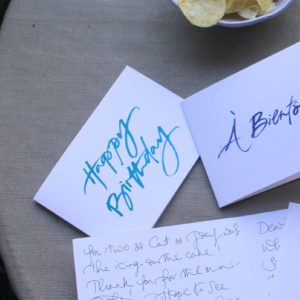 Happy
Birthday
À Biento
You two & Cat & Joey was
the icing on the cake!
Thank you for the mini-
Hope to see
Dear